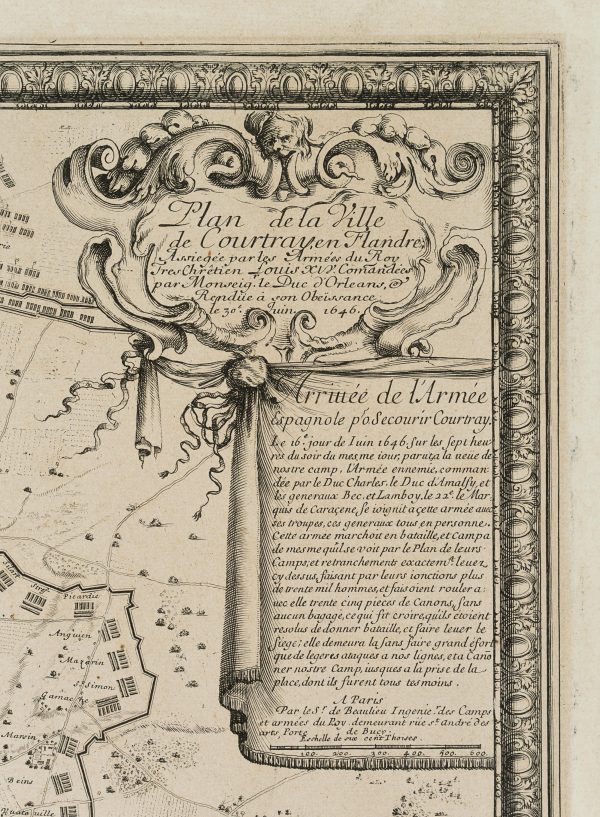 Plan de la Ville
de Courtray, en Flandre,
Assiegée par les Armées du Roy
Tres Chrétien Louis XIV. Comandées
par Monseig.r le Duc d'Orleans, &
Rendüe à son Obeissance
le 30.e Juin 1646.
Arriuée de l'Armée
Espagnole p.r Secourir Courtray.
Le 16.e jour de Iuin 1646. sur les sept heu
res du soir du mesme iour, parut a la ueüe de
nostre camp, l'Armée ennemie, comman
dée par le Duc Charles, le Duc d'Amalfy, et
les generaux Bec, et Lamboy, le 22.e le Mar
quis de Caraçene, se ioignit a çette armée auec
ses troupes, ces generaux tous en personne.
Cette armée marchoit en bataille, et Campa
de mesme qu'il se voit par le Plan de leurs
Camps, et retranchement exactem.t leuez
cy dessus, faisant par leurs ionctions plus
de trente mil hommes, et faisoient rouler a
uec elle trente cinq pieces de Canons, sans
aucun bagage, ce qui fit croire, qu'ils étoient
resolus de donner bataille, et faire leuer le
siege; elle demeura la sans faire grand éfort
que de legeres ataques a nos lignes, et a Cano
ner nostre Camp, iusques a la prise de la
place, dont ils furent tous tesmoins.
A Paris
Par le S.r de Beaulieu Ingenie.r des Camps
et armées du Roy. demeurant rüe s.t andré des
arts Porte de Bucy.
Echelle de six cent Thoises.
100. 200. 300. 400. 500. 600.
Picardie
Anguien
Mazarin
S.t Simon
Gamache
Marsin
Reins